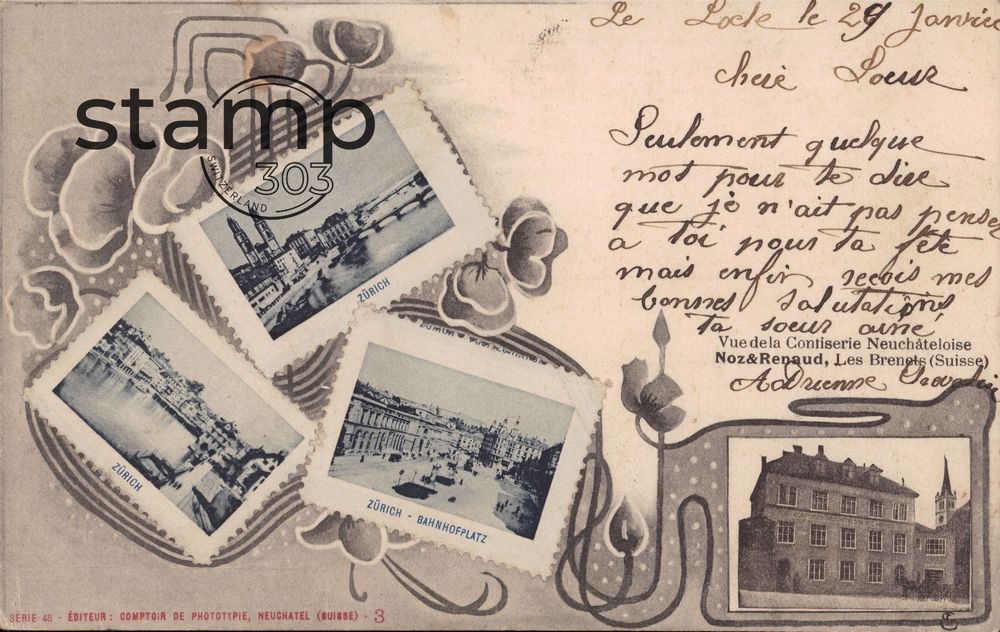 Le Locle le 29 Janvier
cheré Soeur
Seulement quelque
mot pour te dire
que je n'ait pas pensez
a toi pour ta fête
mais enfin reçois mes
bonnes salutations
ta soeur ainé
Adrienne
Vue de la Confiserie Neuchâteloise
Noz & Renaud, Les Brenets (Suisse)
stamp
303
SWITZERLAND
ZÜRICH
ZÜRICH
ZÜRICH - BAHNHOFPLATZ
SÉRIE 48 - ÉDITEUR: COMPTOIR DE PHOTOTYPIE, NEUCHATEL (SUISSE) - 3